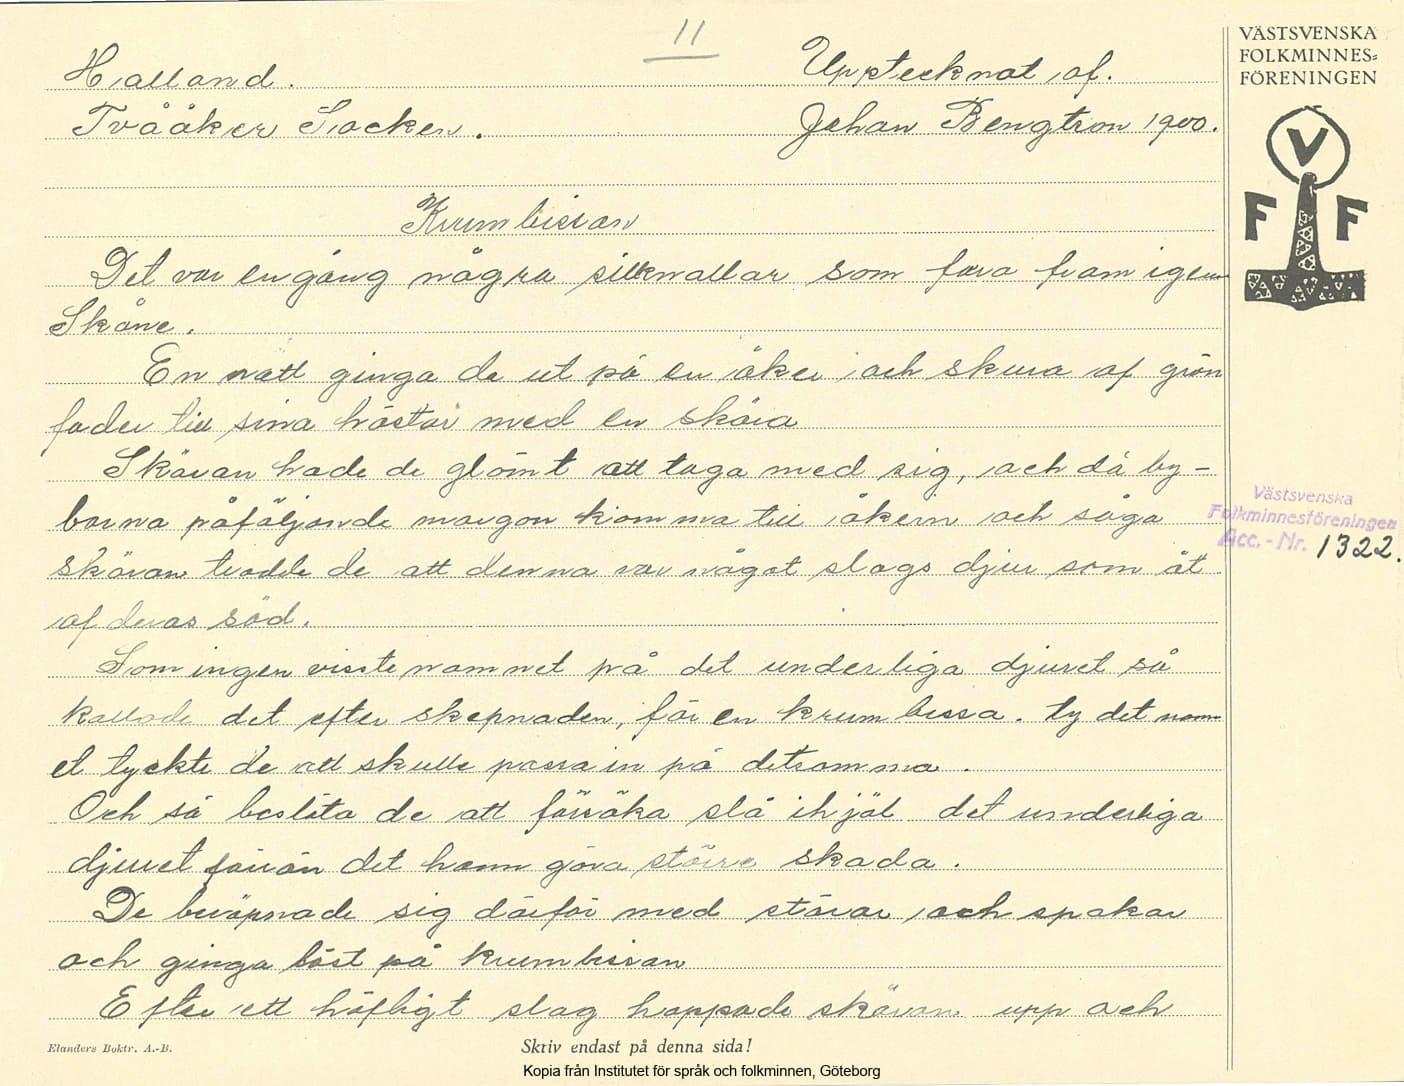 11
Halland.
Upptecknat af.
Tvååker Socken.
Johan Bengtson 1900.
Krumbissan
Det var engång några sillknallar som fara fram igenom
Skåne.
En natt ginga de ut på en åker och skura af grön
foder till sina hästar med en skära
Skäran hade de glömt att taga med sig, och då by-
borna påföljande morgon komma till åkern och såga
skäran trodde de att denna var något slags djur som åt
af deras säd.
Som ingen visste namnet på det underliga djuret så
kallade det efter skepnaden, för en krumbissa. ty det namn-
et tyckte de att skulle passa in på detsamma.
Och så beslöta de att försöka slå ihjäl det underliga
djuret förrän det hann göra större skada.
De beväpnade sig därför med störar och spakar
och ginga löst på krumbissan
Efter ett häftigt slag hoppade skäran upp och
Elanders Boktr. A.-B.
Skriv endast på denna sida!
Kopia från Institutet för språk och folkminnen, Göteborg
VÄSTSVENSKA
FOLKMINNES-
FÖRENINGEN
V
F F
Västsvenska
Folkminnesföreningen
Acc.-Nr. 1322.